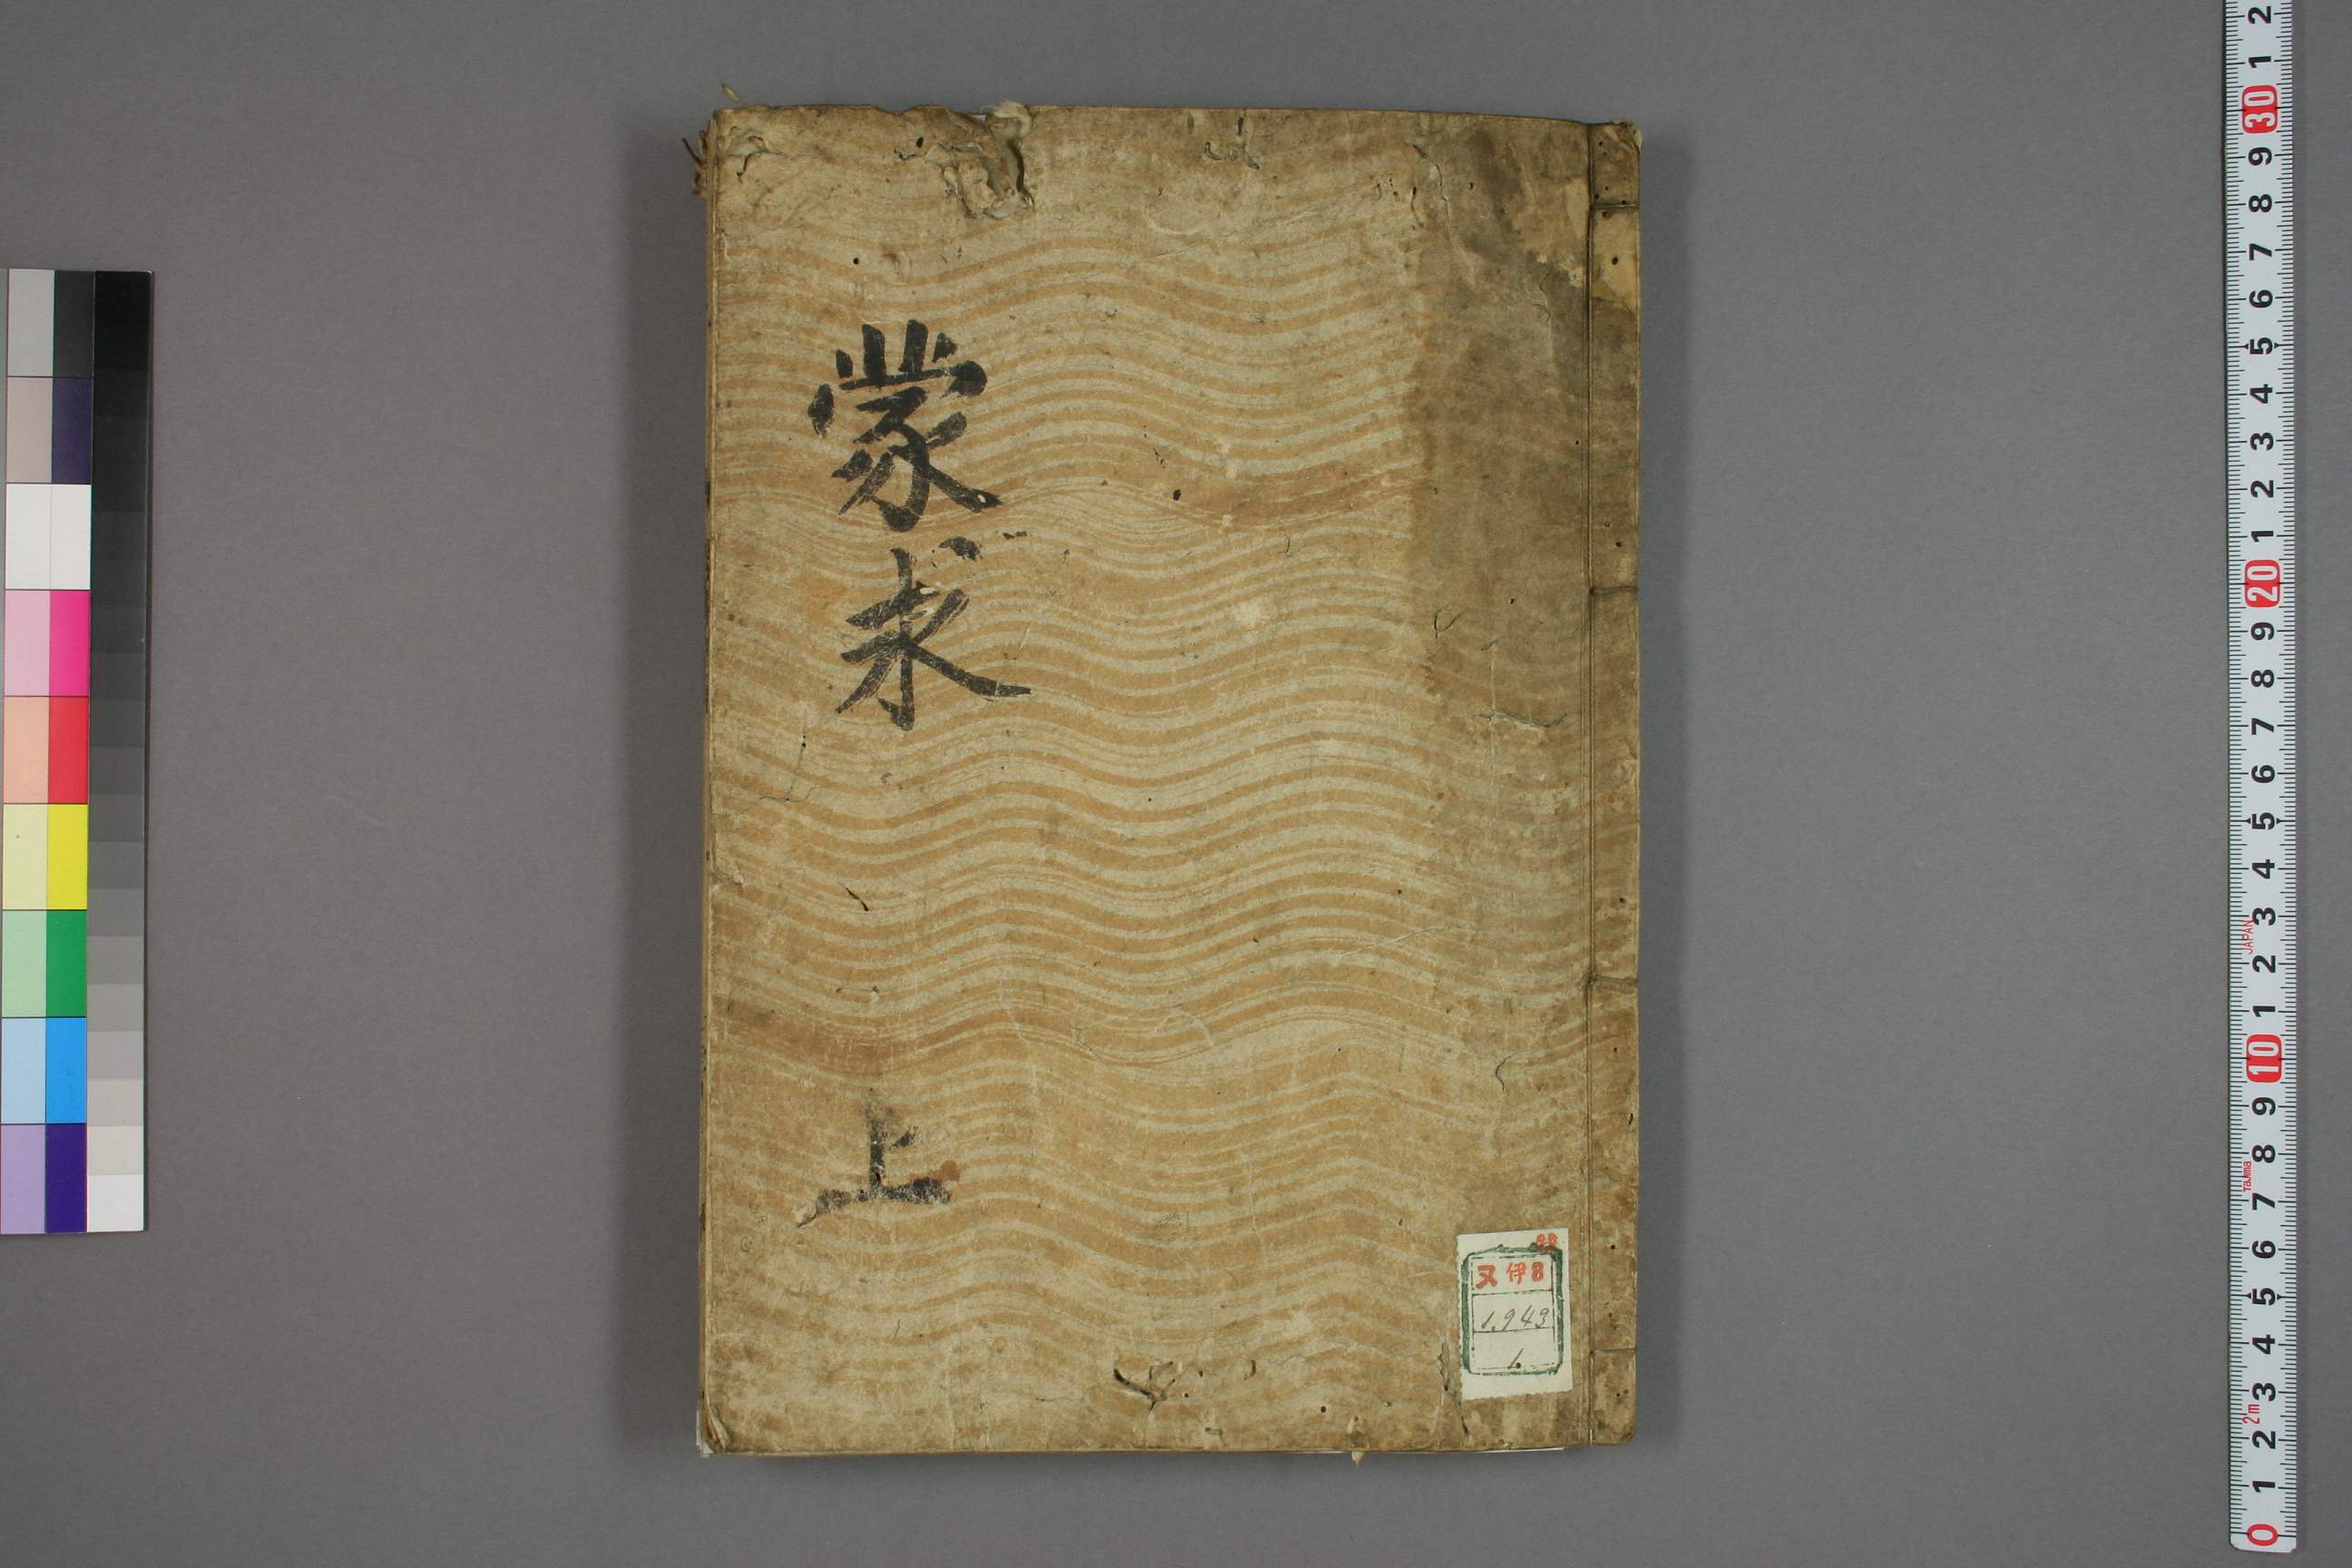 蒙求
上
又伊8
1.943
1.
2 1 30 9 8 7 6 5 4 3 2 1 20 9 8 7 6 5 4 3 2 1 10 9 8 7 6 5 4 3 2 1 0
JAPAN
Tajima
2m